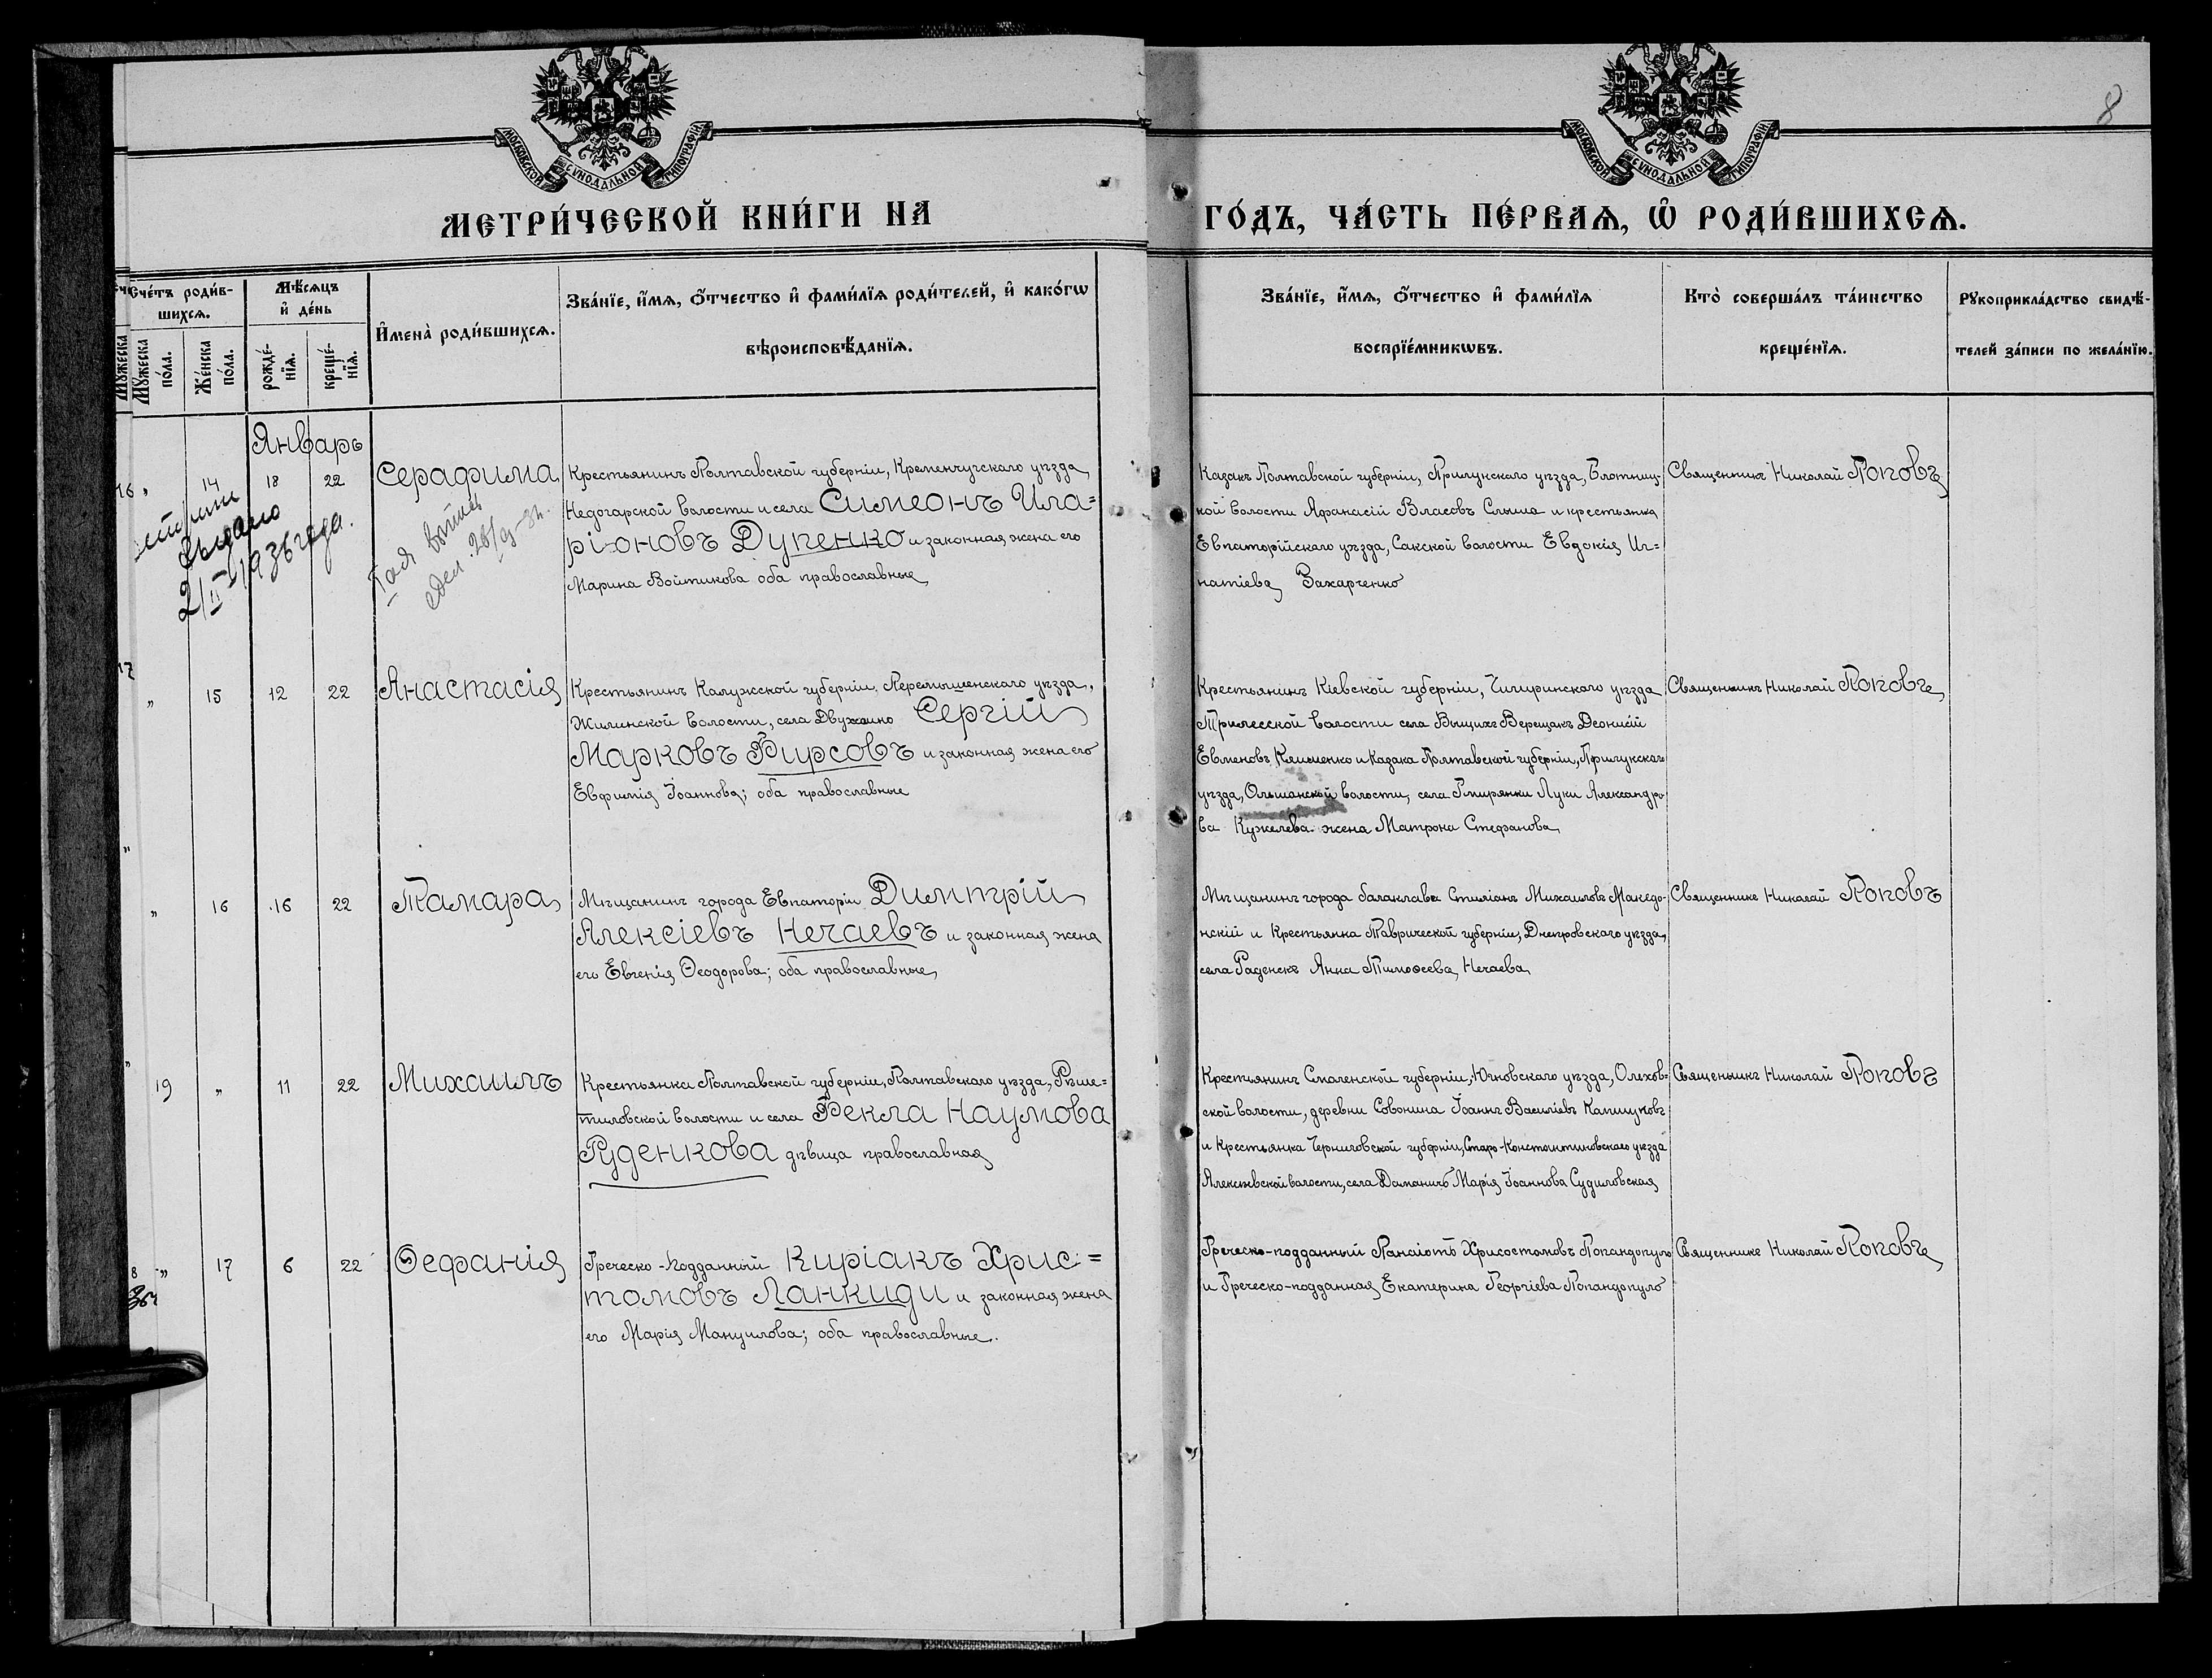 МОСКОВСКОЙ СѴНОДАЛЬНОЙ ТИПОГРАФІИ
МОСКОВСКОЙ СѴНОДАЛЬНОЙ ТИПОГРАФІИ
8
МЕТРИ́ЧЕСКОЙ КНИ́ГИ НА ГО́ДЪ, ЧА́СТЬ ПЕ́РВАѦ, Ѿ РОДИ́ВШИХСѦ.
Сче́тъ роди́в-
шихсѧ.
Мꙋ́жеска
по́ла.
Же́нска
по́ла.
Мѣ́сѧцъ
и҆ де́нь
рожде́-
нїѧ.
креще́-
нїѧ.
И҆мена̀ роди́вшихсѧ.
Зва́нїе, и҆́мѧ, ѻ҆́тчество и҆ фами́лїѧ роди́телей, и҆ како́гѡ
вѣроисповѣ́данїѧ.
Зва́нїе, и҆́мѧ, ѻ҆́тчество и҆ фами́лїѧ
воспрїе́мникѡвъ.
Кто̀ соверша́лъ та́инство
креще́нїѧ.
Рꙋкоприкла́дство свидѣ́-
телей за́писи по жела́нїю.
Январь
16 „ 14 18 22 Серафима
Крестьянинъ Полтавской губерніи, Кременчугскаго уѣзда
Недогарской волости и села Симеонъ Ила=
ріоновъ Дупенко и законная жена его
Марина Войтикова оба православные
выдано
2/II 1936 года.
Казакъ Полтавской губерніи, Прилукскаго уѣзда, Блотниц-
кой волости Афанасій Власовъ Слыша и крестьянка
Евпаторійскаго уѣзда, Сакской волости Евдокія Иг=
натіева Захарченко
Священникъ Николай Поповъ
17
„ 15 12 22 Анастасія
Крестьянинъ Калужской губерніи, Перемышенскаго уѣзда,
Жилинской волости, села Двужино Сергій
Марковъ Фирсовъ и законная жена его
Евфимія Іоаннова; оба православные
Крестьянинъ Кіевской губерніи, Чигиринскаго уѣзда
Трилесской волости села Вищихъ Верещакъ Деонисій
Евменовъ Клименко и казака Полтавской губерніи, Прилукскаго
уѣзда, Ольшанской волости, села Гмирянки Луки Александро
ва Кужелева жена Матрона Стефанова
Священникъ Николай Поповъ
„ 16 16 22 Тамара
Мѣщанинъ города Евпаторіи Димитрій
Алексіевъ Нечаевъ и законная жена
его Евгенія Ѳеодорова; оба православные
Мѣщанинъ города Балаклавы Стиліанъ Михаиловъ Македо-
нскій и Крестьянка Таврической губерніи, Днепровскаго уѣзда,
села Раденскъ Анна Тимоѳеева Нечаева
Священникъ Николай Поповъ
19 „ 11 22 Михаилъ
Крестьянка Полтавской губерніи, Полтавскаго уѣзда, Рѣше=
тиловской волости и села Фекла Наумова
Руденкова дѣвица православная
Крестьянинъ Смоленской губерніи, Юхновскаго уѣзда, Олехов-
ской волости, деревни Совонина Іоаннъ Василіевъ Капшуковъ
и Крестьянка Черниговской губерніи, Старо-Константиновскаго уѣзда
Алексѣевской волости, села Даманичъ Марія Іоаннова Судиловская
Священникъ Николай Поповъ
„ 17 6 22 Ѳефанія
Греческо-подданный Киріакъ Хрис=
томовъ Ланкиди и законная жена
его Марія Мануилова; оба православные.
Греческо-подданный Панаіотъ Хрисостомовъ Попандопуло
и Греческо-подданная Екатерина Георгіева Попандопуло
Священникъ Николай Поповъ